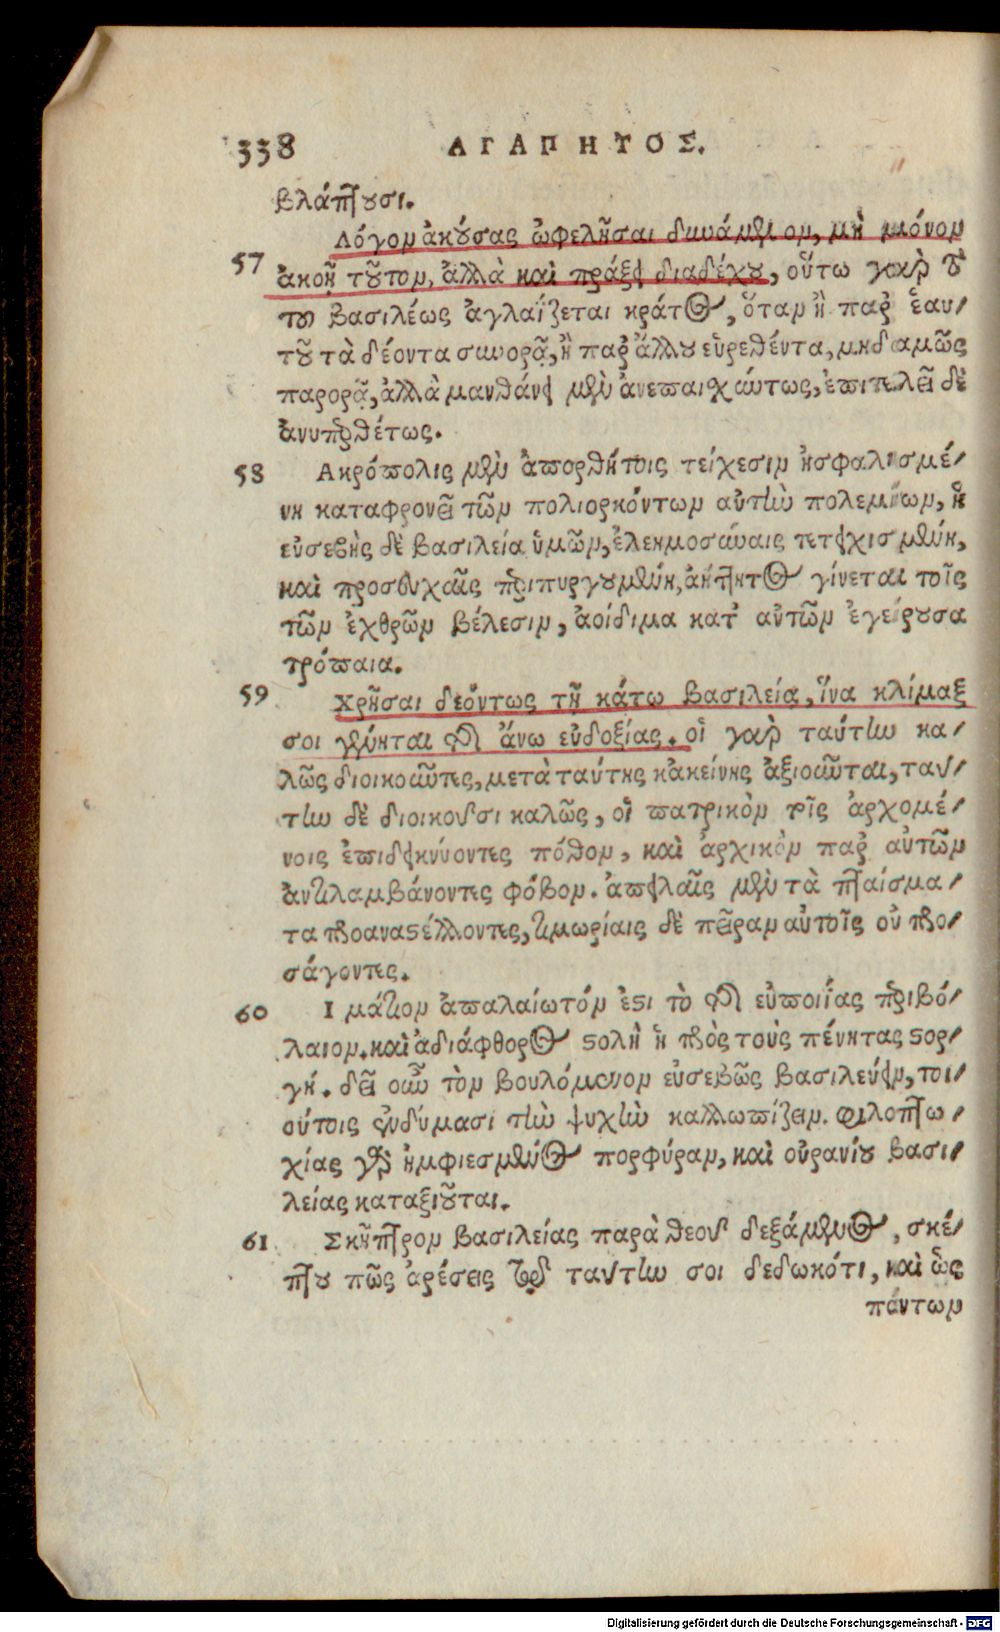 338 ΑΓΑΠΗΤΟΣ.
βλάπτουσι.
Λόγον ἀκούσας ὠφελῆσαι δυνάμενον, μὴ μόνον
57 ἀκοῇ τοῦτον, ἀλλὰ καὶ πράξει διαδέχου, οὕτω γὰρ τὸ
τοῦ βασιλέως ἀγλαΐζεται κράτος, ὅταν ἢ παρ ἑαυ-
τοῦ τὰ δέοντα συνορᾷ, ἢ παρ ἄλλου εὑρεθέντα, μηδαμῶς
παρορᾷ, ἀλλὰ μανθάνει μὲν ἀνεπαισχύτως, ἐπιτελεῖ δὲ
ἀνυπερθέτως.
58 Ακρόπολις μὲν ἀπορθήτοις τείχεσιν ἠσφαλισμέ-
νη καταφρονεῖ τῶν πολιορκόντων αὐτὴν πολεμίων, ἡ
εὐσεβὴς δὲ βασιλεία ὑμῶν, ἐλεημοσύναις τετειχισμένη,
καὶ προσευχαῖς περιπυργουμένη, ἀήττητος γίνεται τοῖς
τῶν ἐχθρῶν βέλεσιν, ἀοίδιμα κατ αὐτῶν ἐγείρουσα
τρόπαια.
59 Χρῆσαι δεόντως τῇ κάτω βασιλείᾳ, ἵνα κλίμαξ
σοι γένηται τῆς ἄνω εὐδοξίας. οἱ γὰρ ταύτην κα-
λῶς διοικοῦντες, μετὰ ταύτης κἀκείνης ἀξιοῦνται, ταύ-
την δὲ διοικοῦσι καλῶς, οἱ πατρικὸν τοῖς ἀρχομέ-
νοις ἐπιδεικνύοντες πόθον, καὶ ἀρχικὸν παρ αὐτῶν
ἀντιλαμβάνοντες φόβον. ἀπειλαῖς μὲν τὰ πταίσμα-
τα προαναστέλλοντες, τιμωρίαις δὲ πεῖραν αὐτοῖς οὐ προ-
σάγοντες.
60 Ιμάτιον ἀπαλαίωτόν ἐστι τὸ τῆς εὐποιΐας περιβό-
λαιον. καὶ ἀδιάφθορος στολὴ ἡ πρὸς τοὺς πένητας στορ-
γή. δεῖ οὖν τὸν βουλόμενον εὐσεβῶς βασιλεύειν, τοι-
ούτοις ἐνδύμασι τὴν ψυχὴν καλλωπίζειν. φιλοπτω-
χίας γὰρ ἠμφιεσμένος πορφύραν, καὶ οὐρανίου βασι-
λείας καταξιοῦται.
61 Σκῆπτρον βασιλείας παρὰ θεοῦ δεξάμενος, σκέ-
πτου πῶς ἀρέσεις τῷ ταύτην σοι δεδωκότι, καὶ ὡς
πάντων
Digitalisierung gefördert durch die Deutsche Forschungsgemeinschaft - DFG